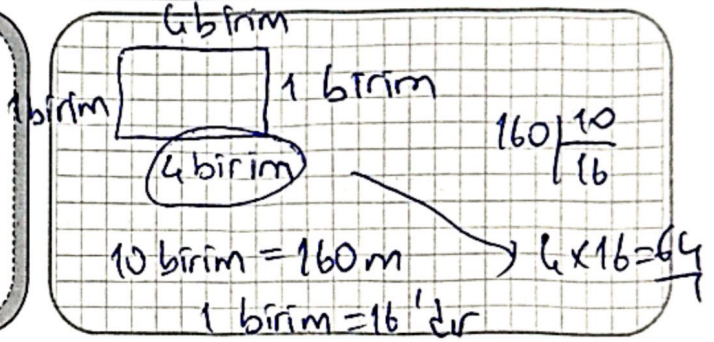 4 birim
1 birim
1 birim
4 birim
160 | 10
16
10 birim = 160 m
4 x 16 = 64
1 birim = 16'dır